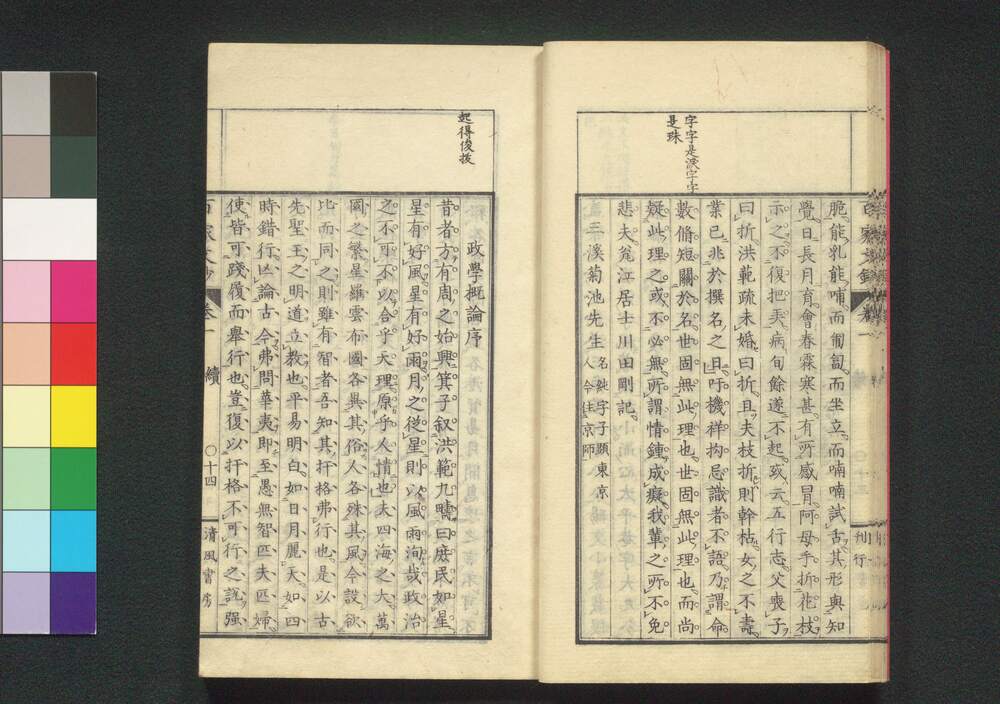 字字是淚字字
是珠
脆能乳能哺而匍匐而坐立而喃喃試舌其形與知
覺日長月育會春霖寒甚有所感冒阿母手折花枝
示之不復把玩病旬餘遂不起或云五行志父喪子
曰折洪範疏未婚曰折且夫枝折則幹枯女之不壽
業已兆於撰名之日吁機祥拘忌識者不語乃謂命
數脩短關於名世固無此理也世固無此理也而尚
疑此理之或不必無所謂情鍾成癡我輩之所不免
悲夫瓮江居士川田剛記
三溪菊池先生名純字子顯東京
人今住京師
百家文鈔 卷一
刊行
起得俊拔
政學概論序
昔者方有周之始興箕子叙洪範九疇曰庶民如星
星有好風星有好雨月之從星則以風雨洵哉政治
之不可不以合乎天理原乎人情也夫四海之大萬
國之繁星羅雲布國各異其俗人各殊其風今設欲
比而同之則雖有智者吾知其扞格弗行也是以古
先聖王之明道立教也平易明白如日月麗天如四
時錯行亾論古今弗問華夷即至愚無智匹夫匹婦
使皆可踐履而舉行也豈復以扞格不可行之說强
百家文鈔 卷一 續 〇十四 清風書房